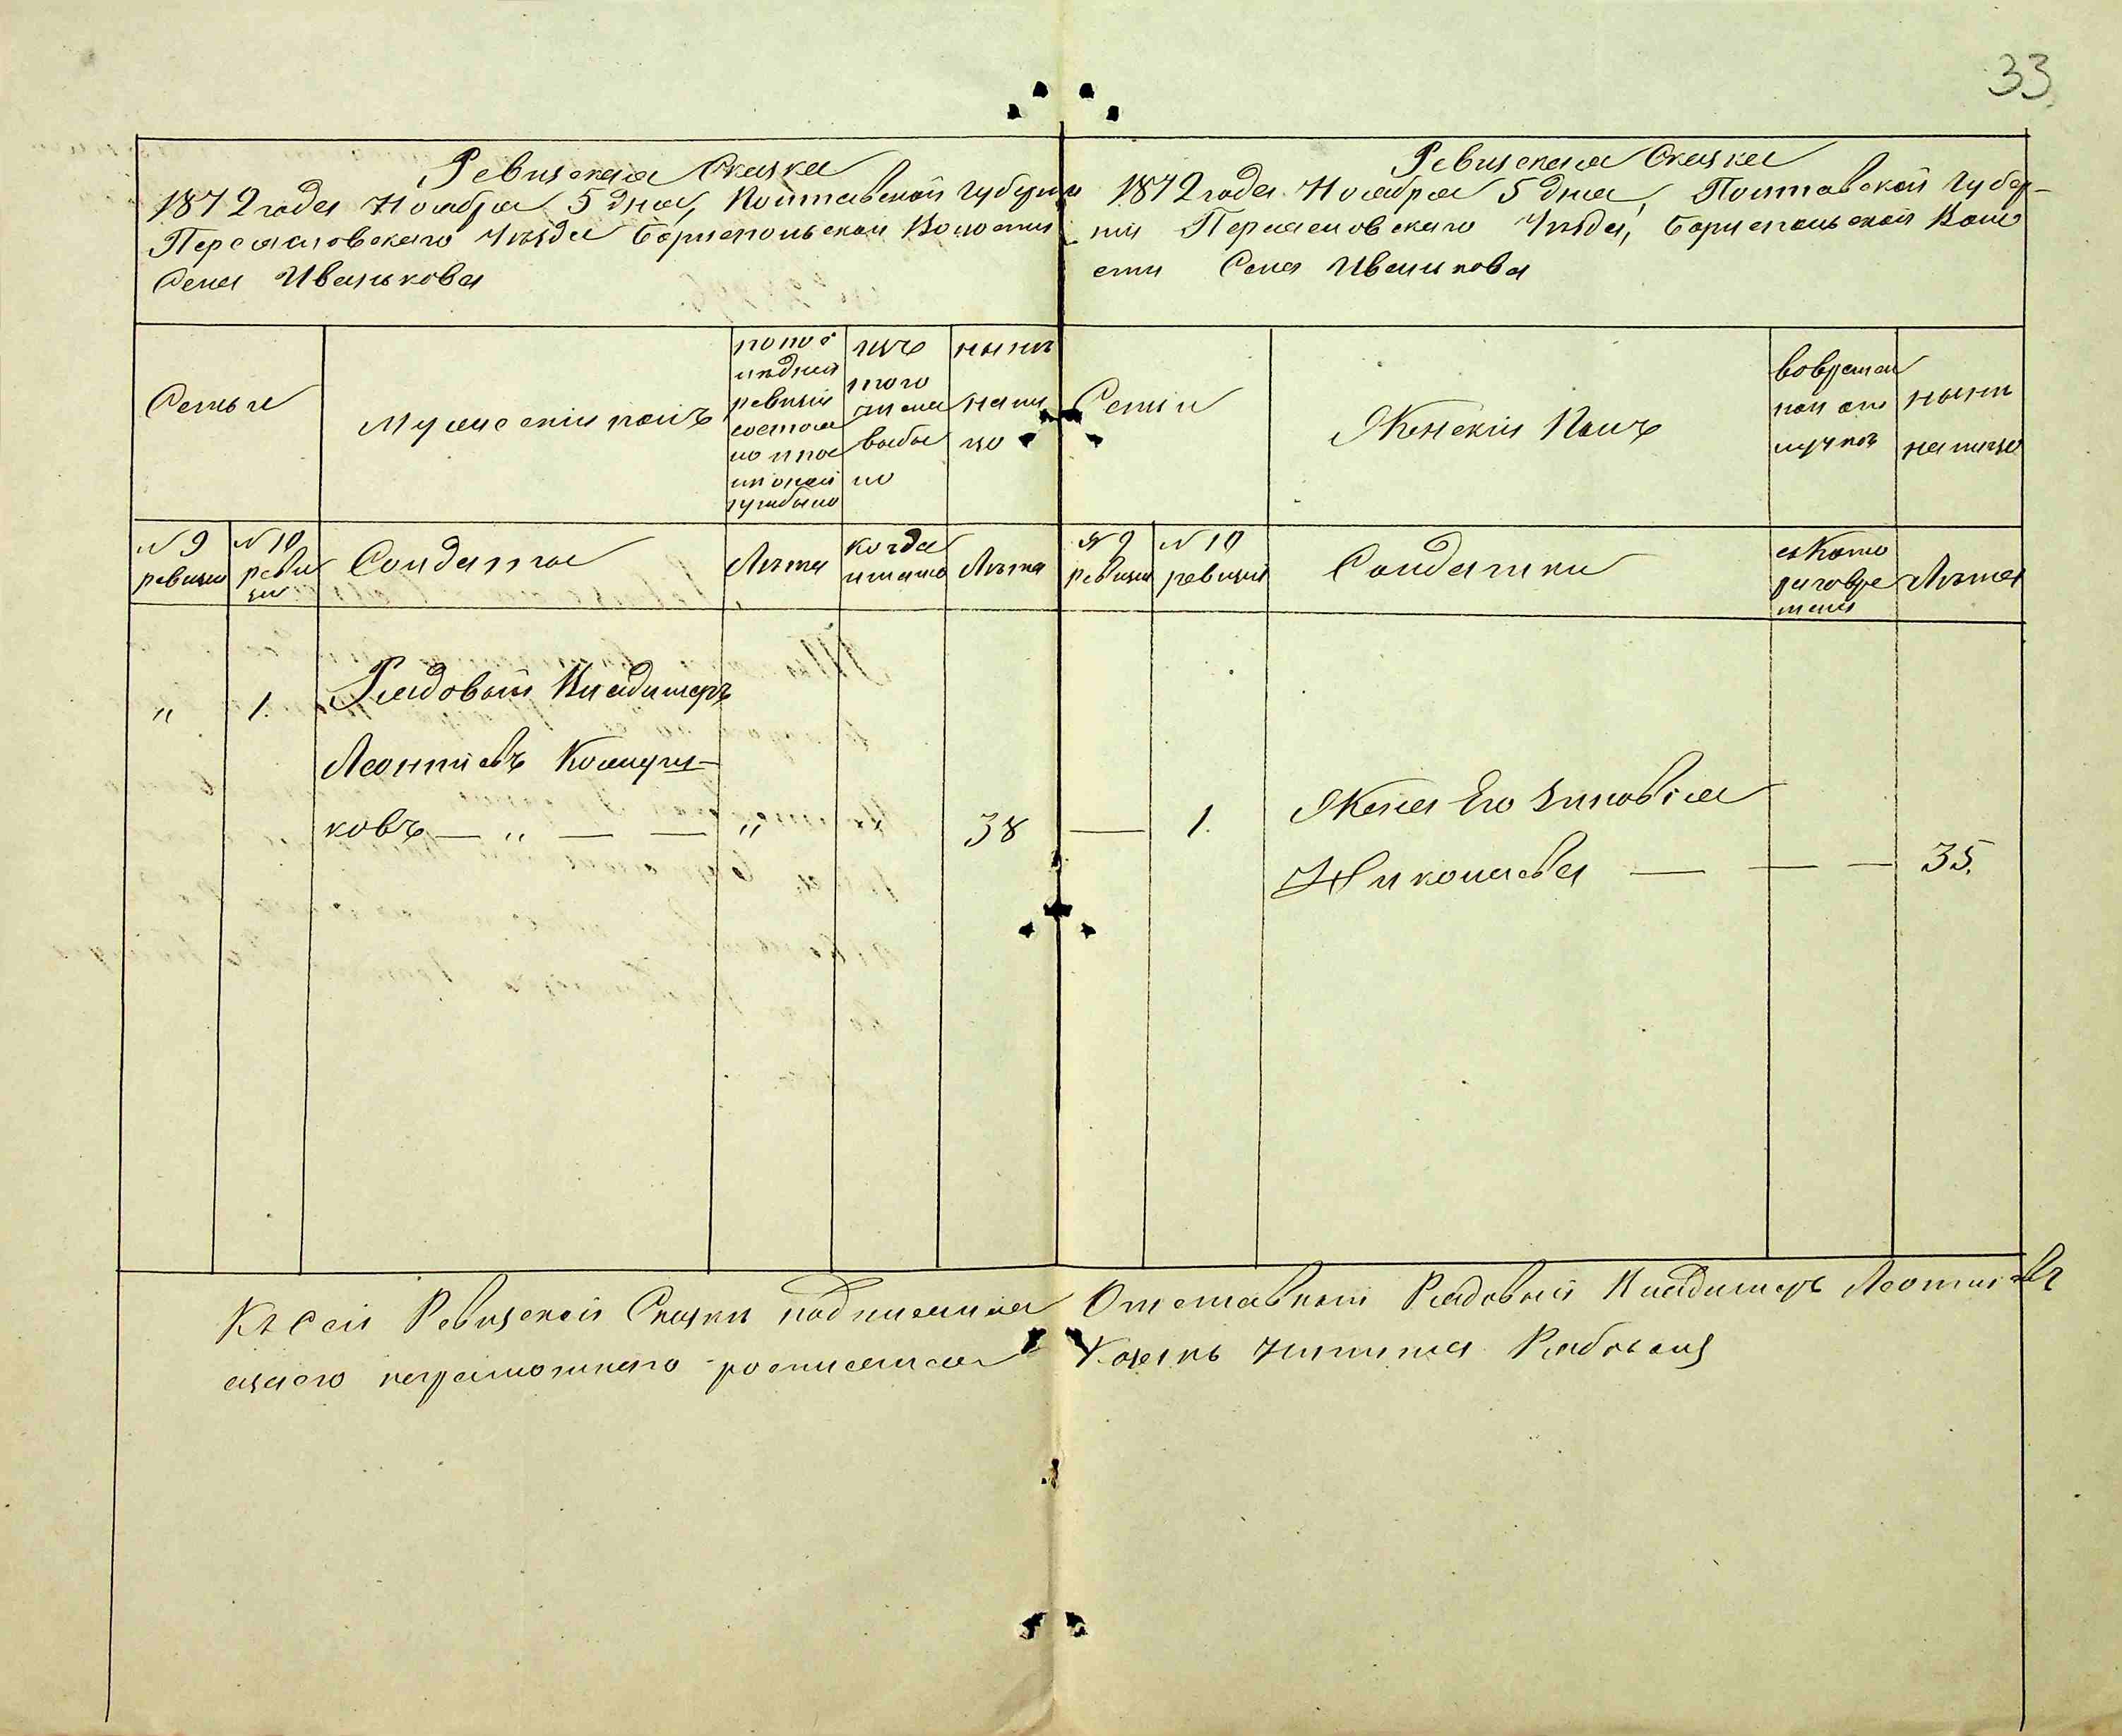 33
Ревизская Сказка
1872 года Ноября 5 дня, Полтавской Губерніи
Переясловскаго Уѣзда Бориспольской Волости
Села Иванькова
Ревизская Сказка
1872 года Ноября 5 дня, Полтавской Губер-
ніи Переясловскаго Уѣзда, Бориспольской Воло
сти Села Иванькова
Семьи
Мужескій полъ
по пос
лѣдней
ревизіи
состоя
ло
изъ
того
числа
выбы
ло
нынѣ
нали
цо
Семьи
Женскій Полъ
во времен
ной от
лучкѣ
нынѣ
налицо
№ 9
ревизіи
№ 10
реви
зіи
Солдаты
Лѣта
когда
имянно
Лѣта
№ 9
ревизіи
№ 10
ревизіи
Солдатки
съ кото
раго вре
мени
Лѣта
" 1. Рядовой Владимеръ
Леонтіевъ
ковъ — " — — " 38
— 1. Жена Его Зиновія
Николаева — — — 35.
Къ сей Ревизской Сказки подписался Отставной Рядовой Владимеръ Леонтіевъ
а за его неграмотнаго росписался Козакъ Никита